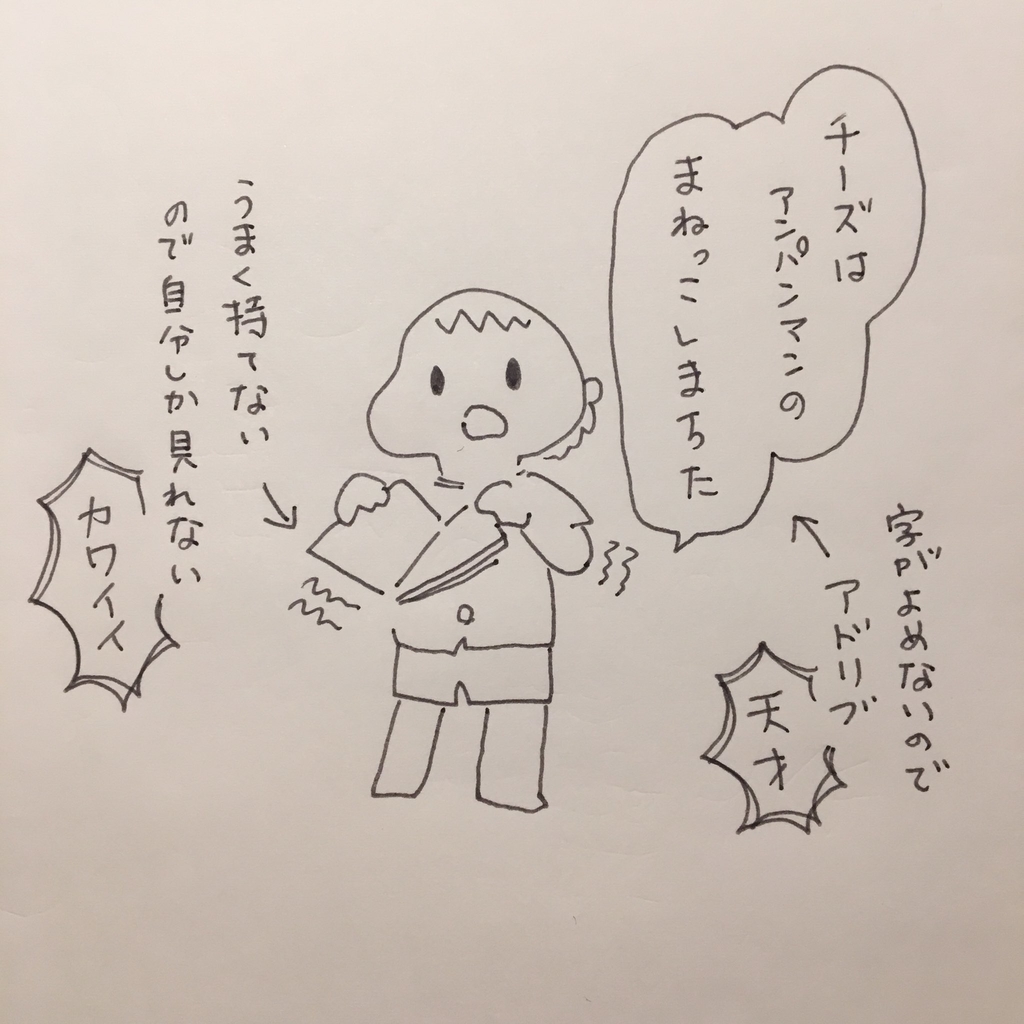 チーズは
アンパンマンの
まねっこしまちた
字がよめないので
アドリブ
天才
うまく持てない
ので自分しか見れない
カワイイ